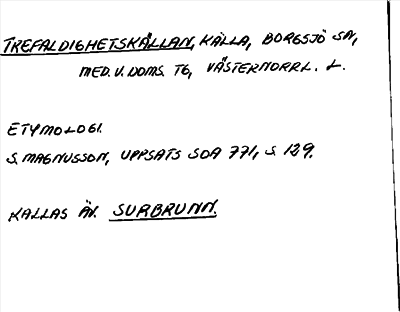 TREFALDIGHETSKÄLLAN, KÄLLA, BORGSJÖ SN,
MED. V. DOMS. TG, VÄSTERNORRL. L.
ETYMOLOGI.
S. MAGNUSSON, UPPSATS SOA 771, S. 129.
KALLAS ÄV. SURBRUNN.